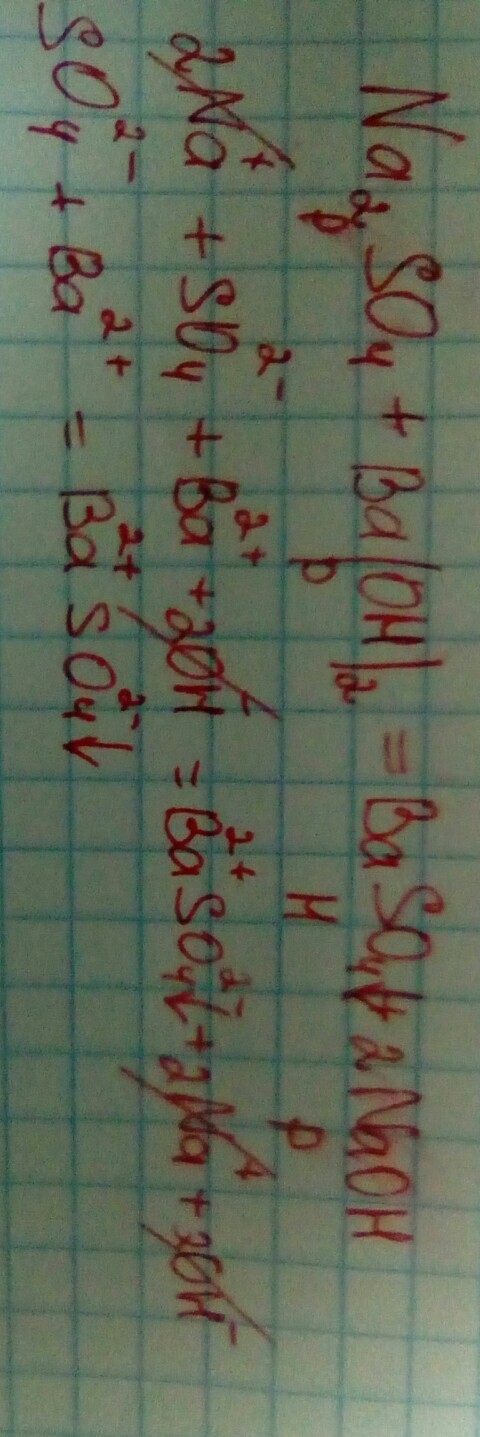 Na₂SO₄ + Ba(OH)₂ = BaSO₄↓ + 2NaOH
р р Н р
2Na⁺ + SO₄²⁻ + Ba²⁺ + 2OH⁻ = Ba²⁺SO₄²⁻↓ + 2Na⁺ + 2OH⁻
SO₄²⁻ + Ba²⁺ = Ba²⁺SO₄²⁻↓